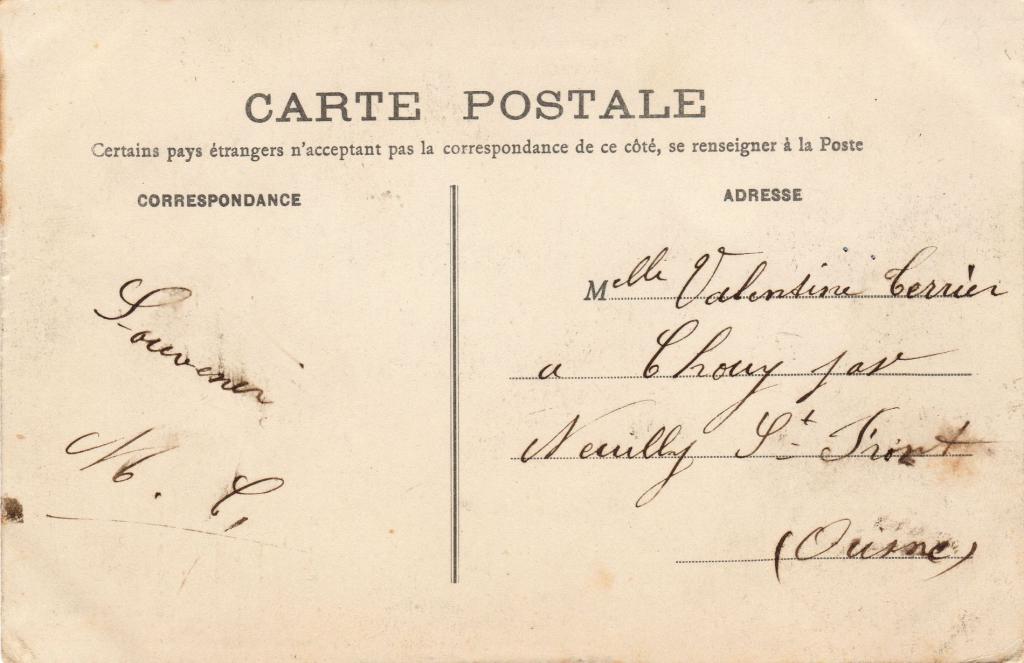 CARTE POSTALE
Certains pays étrangers n'acceptant pas la correspondance de ce côté, se renseigner à la Poste
CORRESPONDANCE
Souvenir
M. C,
ADRESSE
Melle Valentine Terrier
a Chouy par
Neuilly St Front
(Aisne)